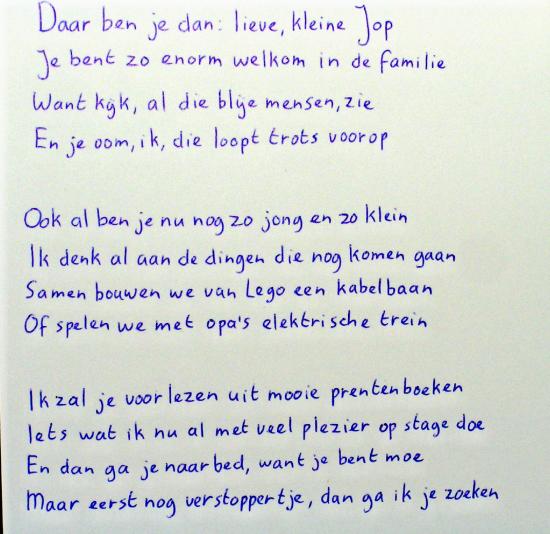 Daar ben je dan: lieve, kleine Jop
Je bent zo enorm welkom in de familie
Want kijk, al die blije mensen, zie
En je oom, ik, die loopt trots voorop
Ook al ben je nu nog zo jong en zo klein
Ik denk al aan de dingen die nog komen gaan
Samen bouwen we van Lego een kabelbaan
Of spelen we met opa's elektrische trein
Ik zal je voorlezen uit mooie prentenboeken
Iets wat ik nu al met veel plezier op stage doe
En dan ga je naar bed, want je bent moe
Maar eerst nog verstoppertje, dan ga ik je zoeken